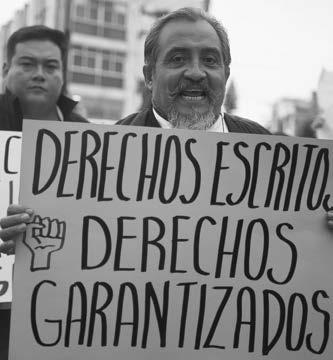 DERECHOS ESCRITOS
DERECHOS
GARANTIZADOS